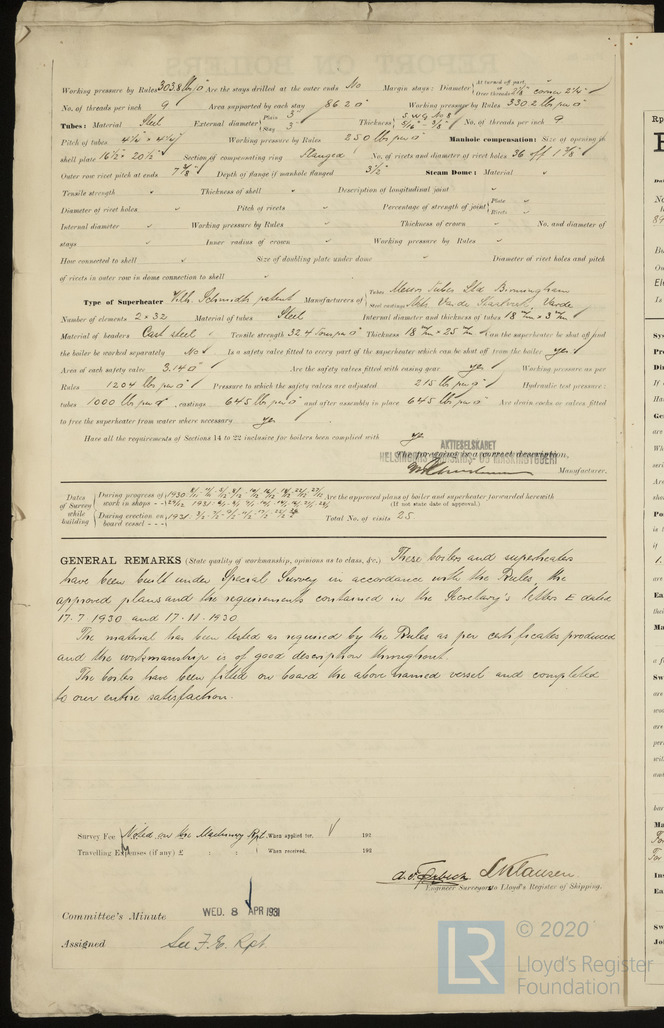 Working pressure by Rules 303.8 lbs/□" Are the stays drilled at the outer ends No Margin stays: Diameter { At turned off part, or Over threads 2 1/8" corner 2 1/4"
No. of threads per inch 9 Area supported by each stay 86.2 □" Working pressure by Rules 330.2 lbs per □"
Tubes: Material Steel External diameter { Plain 3" Stay 3" Thickness { S.W.G. No 8 5/16" - 3/8" No. of threads per inch 9
Pitch of tubes Working pressure by Rules 250 lbs per □" Manhole compensation: Size of opening in
shell plate 16 1/2" × 20 1/2" Section of compensating ring Flanged No. of rivets and diameter of rivet holes 36 off 1 1/8"
Outer row rivet pitch at ends 7 7/8" Depth of flange if manhole flanged 3 1/2" Steam Dome: Material
Tensile strength Thickness of shell Description of longitudinal joint
Diameter of rivet holes Pitch of rivets Percentage of strength of joint { Plate Rivets
Internal diameter Working pressure by Rules Thickness of crown No. and diameter of
stays Inner radius of crown Working pressure by Rules
How connected to shell Size of doubling plate under dome Diameter of rivet holes and pitch
of rivets in outer row in dome connection to shell
Type of Superheater Wilh. Schmidts patent Manufacturers of { Tubes Messrs Tubes Ltd Birmingham Steel castings Varde
Number of elements 2 × 32 Material of tubes Steel Internal diameter and thickness of tubes 18 m/m × 3 m/m
Material of headers Cast steel Tensile strength 32.4 Tons per □" Thickness 18 m/m × 25 m/m Can the superheater be shut off and
the boiler be worked separately No Is a safety valve fitted to every part of the superheater which can be shut off from the boiler yes
Area of each safety valve 3.14 □" Are the safety valves fitted with easing gear yes Working pressure as per
Rules 1204 lbs per □" Pressure to which the safety valves are adjusted 215 lbs per □" Hydraulic test pressure:
tubes 1000 lbs per □", castings 645 lbs per □" and after assembly in place 645 lbs per □" Are drain cocks or valves fitted
to free the superheater from water where necessary yes
Have all the requirements of Sections 14 to 22 inclusive for boilers been complied with yes
AKTIESELSKABET
The foregoing is a correct description,
Manufacturer.
Dates of Survey while building { During progress of work in shops - - 1930 Are the approved plans of boiler and superheater forwarded herewith
(If not state date of approval.)
During erection on board vessel - - - 1931 Total No. of visits 25
GENERAL REMARKS (State quality of workmanship, opinions as to class, &c.) These boilers and superheaters
have been built under Special Survey in accordance with the Rules, the
approved plans and the requirements contained in the Secretary's letters E dated
17.7.1930 and 17.11.1930
The material has been tested as required by the Rules as per certificates produced
and the workmanship is of good description throughout.
The boilers have been fitted on board the above named vessel and completed
to our entire satisfaction.
Survey Fee Noted on the Machinery Rpt. When applied for, 192
Travelling Expenses (if any) £ : : When received, 192
Klausen
Engineer Surveyors to Lloyd's Register of Shipping.
Committee's Minute WED. 8 APR 1931
Assigned See F.E. Rpt
© 2020
LR
Lloyd's Register
Foundation